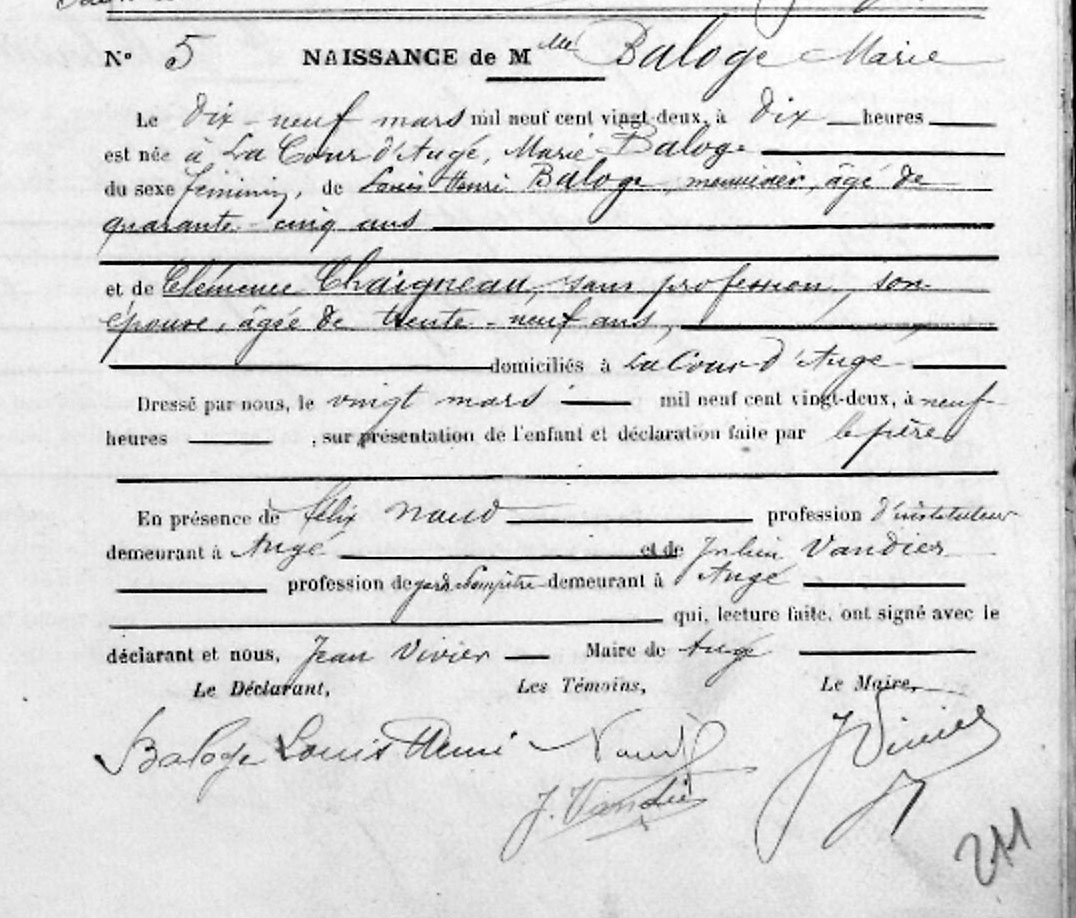 N° 5 NAISSANCE de M lle Baloge Marie
Le Dix-neuf mars mil neuf cent vingt-deux, à Dix heures
est née à La Cour d'Augé, Marie Baloge
du sexe féminin, de Louis Henri Baloge, menuisier, âgé de
quarante-cinq ans
et de Clémence Chaigneau, sans profession, son
épouse, âgée de trente-neuf ans,
domiciliés à La Cour d'Augé
Dressé par nous, le vingt mars mil neuf cent vingt-deux, à neuf
heures , sur présentation de l'enfant et déclaration faite par le père
En présence de félix Naud profession d'instituteur
demeurant à Augé et de Julien Vandier
profession de garde champêtre demeurant à Augé
qui, lecture faite, ont signé avec le
déclarant et nous, Jean Vivier Maire de Augé
Le Déclarant, Les Témoins, Le Maire,
Baloge Louis Henri Naud J Vivier
J. Vandier
211